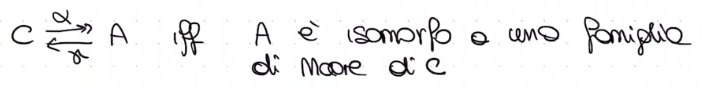 C ⇄ A iff A è isomorfo a una famiglia
α γ
di Moore di C